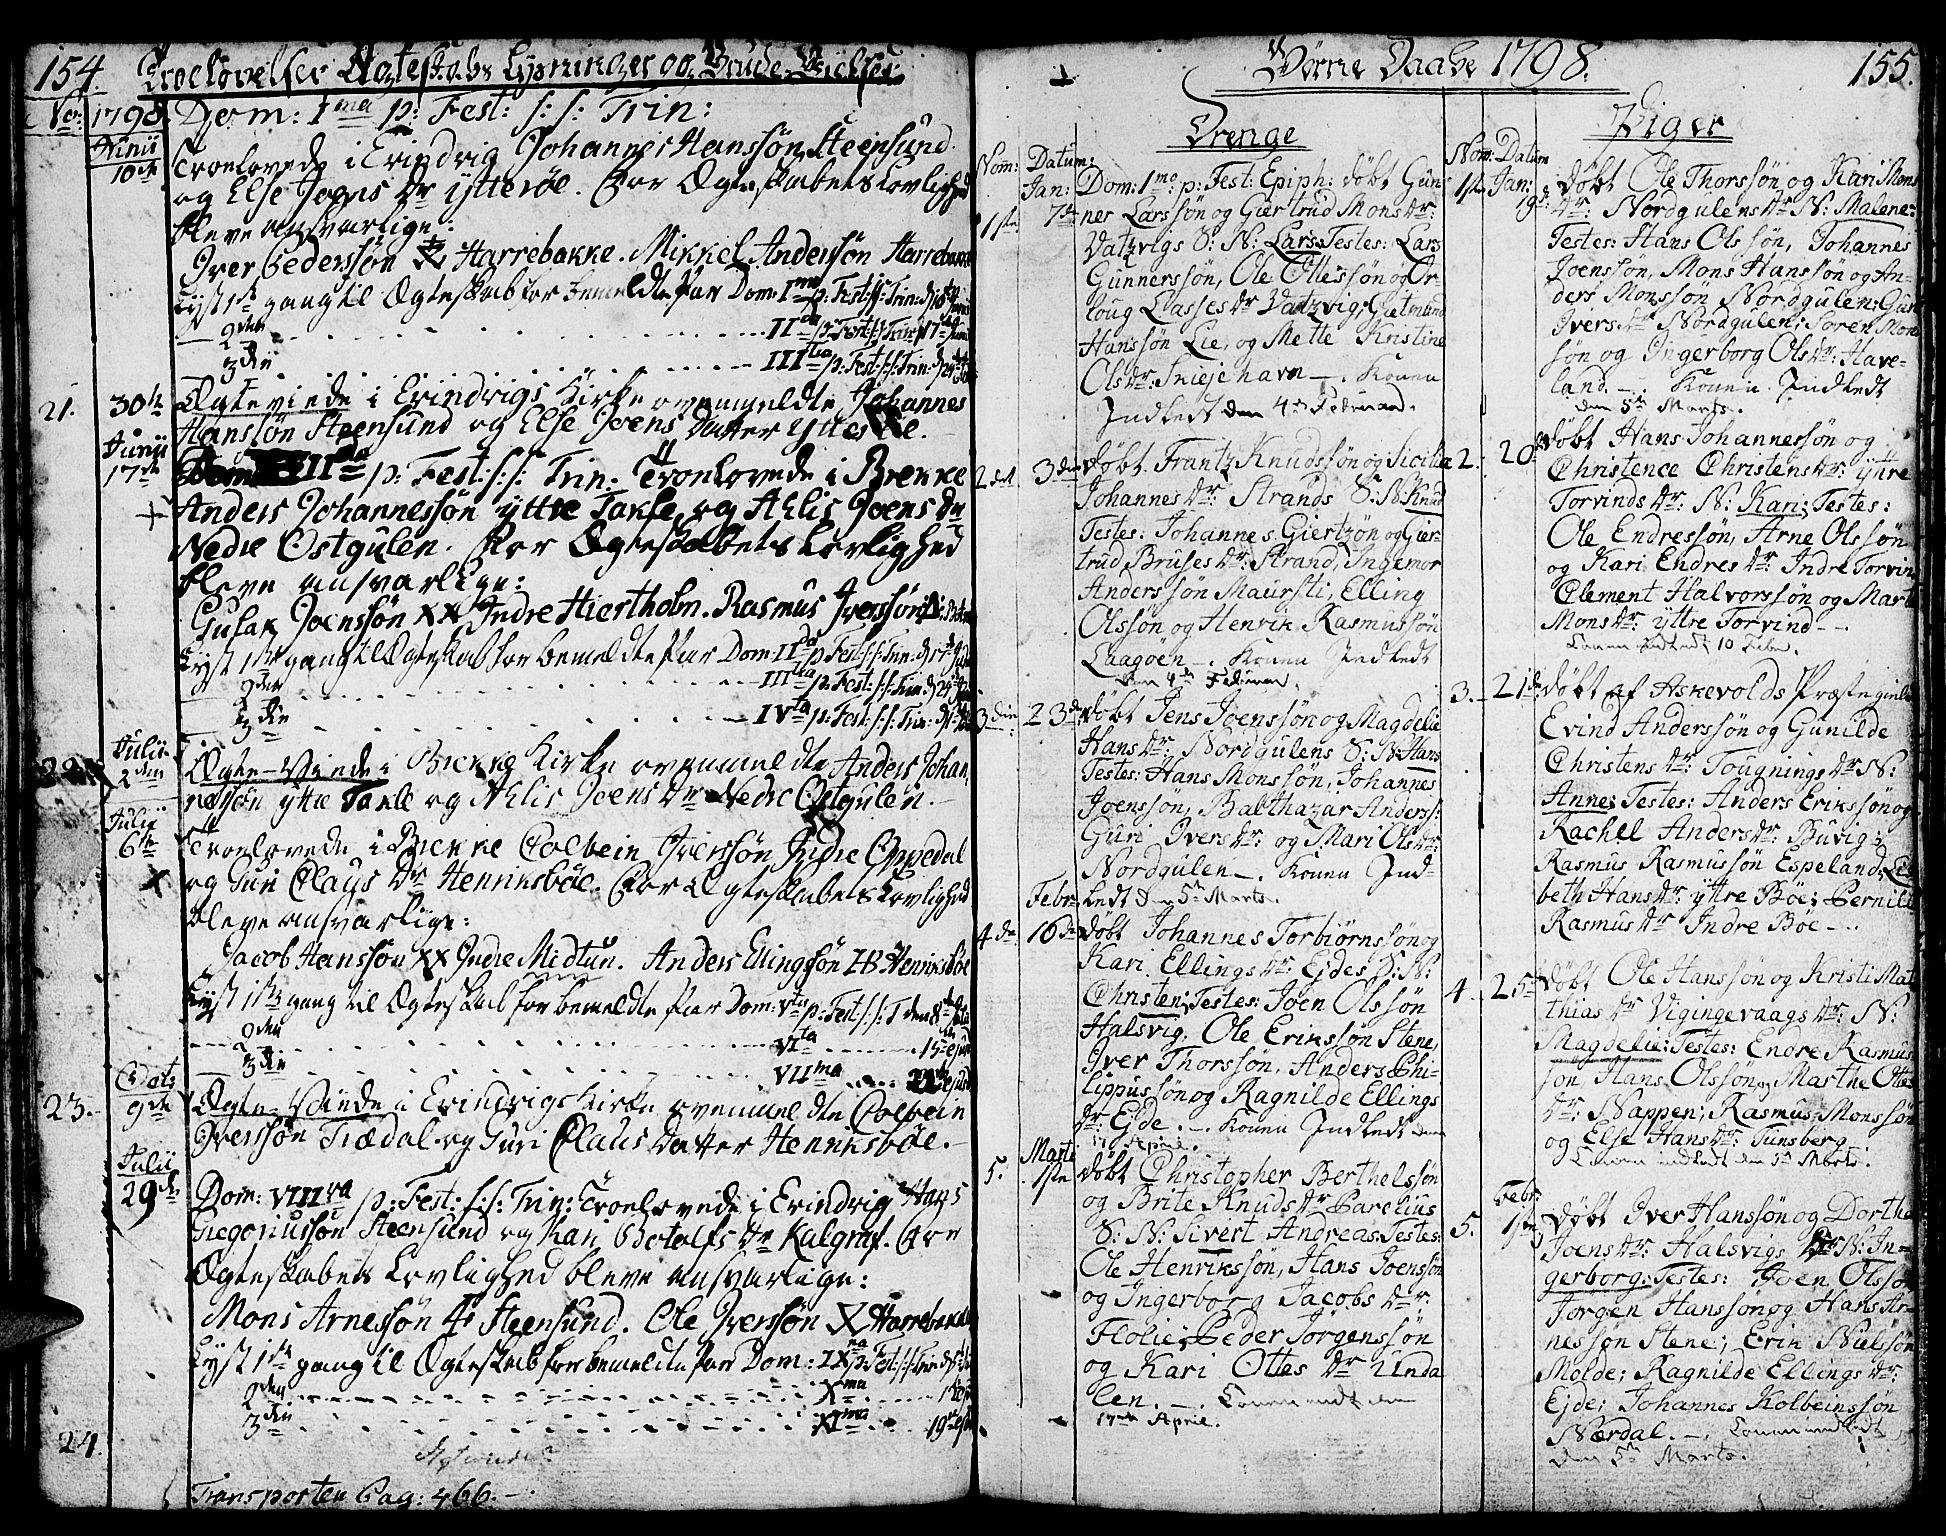 154. Troelovelser Ægteskabs Lysninger og Brude-Vielser
No: 1798. Dom: 1ma p: Fest: s: s: Trin:
Junii 10de Troelovede i Erindvig Johannes Hanssøn Steensund
og Else Joens dr ytterøe. For Ægteskabets Lovlighed
bleve ansvarlige:
Iver Pederssøn Harrebakke. Mikkel Anderssøn Harrebakke
Lyst 1ste gang til Ægteskab for bemeldte Par Dom: 1ma p: Fest: s: s: Trin: d 10de Junii
2den IIda p: Fest: s: s: Trin: d 17de Junii
3die IIItia p: Fest: s: s: Trin: d 24de
21. 30te Ægteviede i Evindvigs Kirke ovenmeldte Johannes
Hanssøn Steensund og Else Joens Datter
Junii 17de Dom: IIda p: Fest: s: s: Trin: Troelovede i Brekke
Anders Johannessøn yttre Takle og Ahlis Joens dr
Nedre Ostgulen. For Ægteskabets Lovlighed
bleve ansvarlige:
Gulak Joenssøn XX Indre Hiertholm. Rasmus Iverssøn
Lyst 1ste gang til Ægteskab for bemeldte Par Dom: IIda p: Fest: s: s: Trin: d 17de
2den IIItia p: Fest: s: s: Trin: d 24de
3die IVta p: Fest: s: s: Trin: d 1ste
22. Julii 2den Ægte-Viede i Brekke Kirke ovenmeldte Anders Johan,
nessøn yttre Takle og Ahlis Joens dr Nedre Ostgulen.
Julii 6te Troelovede i Brekke Colbein Iverssøn Indre Oppedal
og Guri Claus dr Henriksbøe. For Ægteskabets Lovlighed
bleve ansvarlige:
Jacob Hanssøn XX Indre Midtun. Anders Ellingssøn HB Henriksbøe
Lyst 1ste gang til Ægteskab for bemeldte Par Dom: Vta p: Fest: s: s: T den 8de Julii
2den VIta 15de ejusd
3die VIIma ejusd
23. Octb 9de Ægte-Viede i Evindvigs Kirke ovenmeldte Colbein
Iverssøn Trædal og Guri Claus Datter Henriksbøe.
Julii 29de Dom: VIIIva p: Fest: s: s: Trin: Troelovede i Erindvig Hans
Gregoriussøn Steensund og Kari Botolfs dr Kalgraf. For
Ægteskabets Lovlighed bleve ansvarlige:
Mons Arnessøn Steensund. Ole Iverssøn X Harrebakke
Lyst 1ste gang til Ægteskab for bemeldte Par Dom: IXna p: Fest: s: s: Trin: d 5te
2den Xma 12
3die XIma 19de ejusd
24.
Transporten Pag: 466.
Børne Daabe 1798. 155.
Drenge
Nom: Datum:
1ste Jan: 7de Dom: 1ma p: Fest: Epiph: døbt Gun-
nes Larssøn og Giertrud Mons dr:
Vatzvigs S: N: Lars Testes: Lars
Gunnerssøn, Ole Ollessøn og Or-
loug Lasses dr Vatzvig; Gutmund
Hanssøn Lie, og Mette Kristine
Ols dr: Sniejehavn. Konen
Indledt den 4de Februar.
2det 3die døbt Frantz Knudssøn og Sicilia
Johannes dr: Strands S: N: Knud
Testes: Johannes Giertzøn og Gier-
trud Bruses dr: Strand, Ingemor
Anderssøn Maursti, Elling
Olssøn og Henrik Rasmussøn
Laagøen. Konen Indledt
den 4de Februar.
3die 23de døbt Jens Joenssøn og Magdelie
Hans dr: Nordgulens S: N: Hans
Testes: Hans Monssøn, Johannes
Joenssøn, Balthazar Anderss:
Guri Ivers dr: og Mari Ols dr:
Nordgulen. Konen Ind-
ledt den 5te Marts.
4de Febr: 16de døbt Johannes Torbiørnssøn og
Kari Ellings dr: Ejdes S: N:
Christen; Testes: Joen Olssøn
Halsvig, Ole Erikssøn Stene,
Iver Thorssøn, Anders Phi-
lippussøn og Ragnilde Ellings
dr: Ejde. Konen Indledt den
17 April.
5. Marts 1ste døbt Christopher Berthelssøn
og Brite Knuds dr Parelius
S: N: Sivert Andreas. Testes:
Ole Henrikssøn, Hans Joenssøn
og Ingerborg Jacobs dr:
Flolie; Peder Jørgenssøn
og Kari Ottes dr Unda
len. Konen indt den
17de April.
Piger
Nom: Datum
1ste Jan: 19de døbt Ole Thorssøn og Kari Mons
dr: Nordgulens dr N: Malene:
Testes: Hans Olssøn, Johannes
Joenssøn, Mons Hanssøn og An-
ders Monssøn Nordgulen; Guri
Ivers dr Nordgulen; Søren Mons
søn og Ingerborg Ols dr: Have-
land. Konen Indledt
den 5te Marts.
2. 20de døbt Hans Johannessøn og
Christence Christens dr: yttre
Torvinds dr: N: Kari; Testes:
Ole Endressøn, Arne Olssøn
og Kari Endres dr: Indre Torvind
Clement Halvorssøn og Marte
Mons dr: yttre Torvind
Konen indledt 10 Febr.
3. 21de døbt af Askevolds Præstegield
Evind Anderssøn og Gunilde
Christens dr: Tougnings dr N:
Anne; Testes: Anders Erikssøn og
Rachel Anders dr: Buvig;
Rasmus Rasmussøn Espeland; Lis
beth Hans dr: yttre Bøe; Pernille
Rasmus dr Indre Bøe.
4. 25de døbt Ole Hanssøn og Kristi Mat
thias dr Vigingevaags dr: N:
Magdelie: Testes: Endre Rasmus
søn, Hans Olssøn og Marthe Ottes
dr: Nappen; Rasmus Monssøn
og Else Hans dr: Tunsberg
Konen indledt den 5te Marts.
5. Febr: 1ste døbt Iver Hanssøn og Dorthe
Joens dr: Halsvigs dr N: In-
gerborg: Testes: Joen Olssøn
Jørgen Hanssøn og Hans Ar-
nessøn Stene; Erik Nielssøn
Molde; Ragnilde Ellings dr:
Ejde; Johannes Kolbeinssøn
Nærdal. Konen indledt
den 5te Marts.